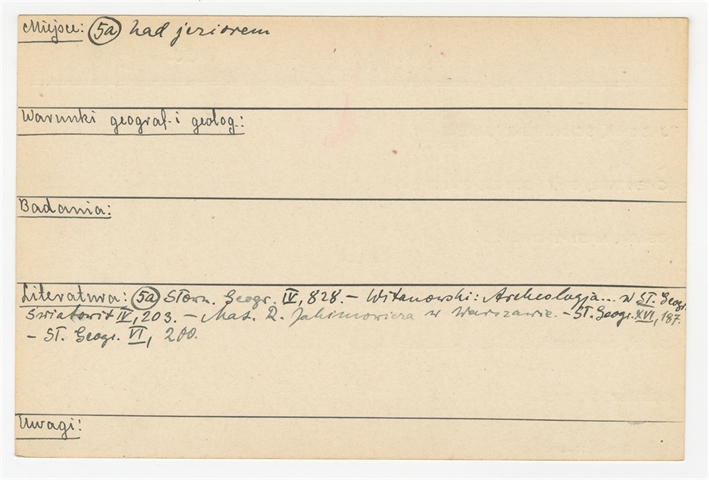 Miejsce: 5a nad jeziorem
Warunki geograf. i geolog.:
Badania:
Literatura: 5a Słown. Geogr. IV, 828. – Witanowski: Archeologja... w Sł. Geogr.
Światowit IV, 203. – Mat. R. Jakimowicza w Warszawie. – Sł. Geogr. XVI, 187.
– Sł. Geogr. VI, 200.
Uwagi: